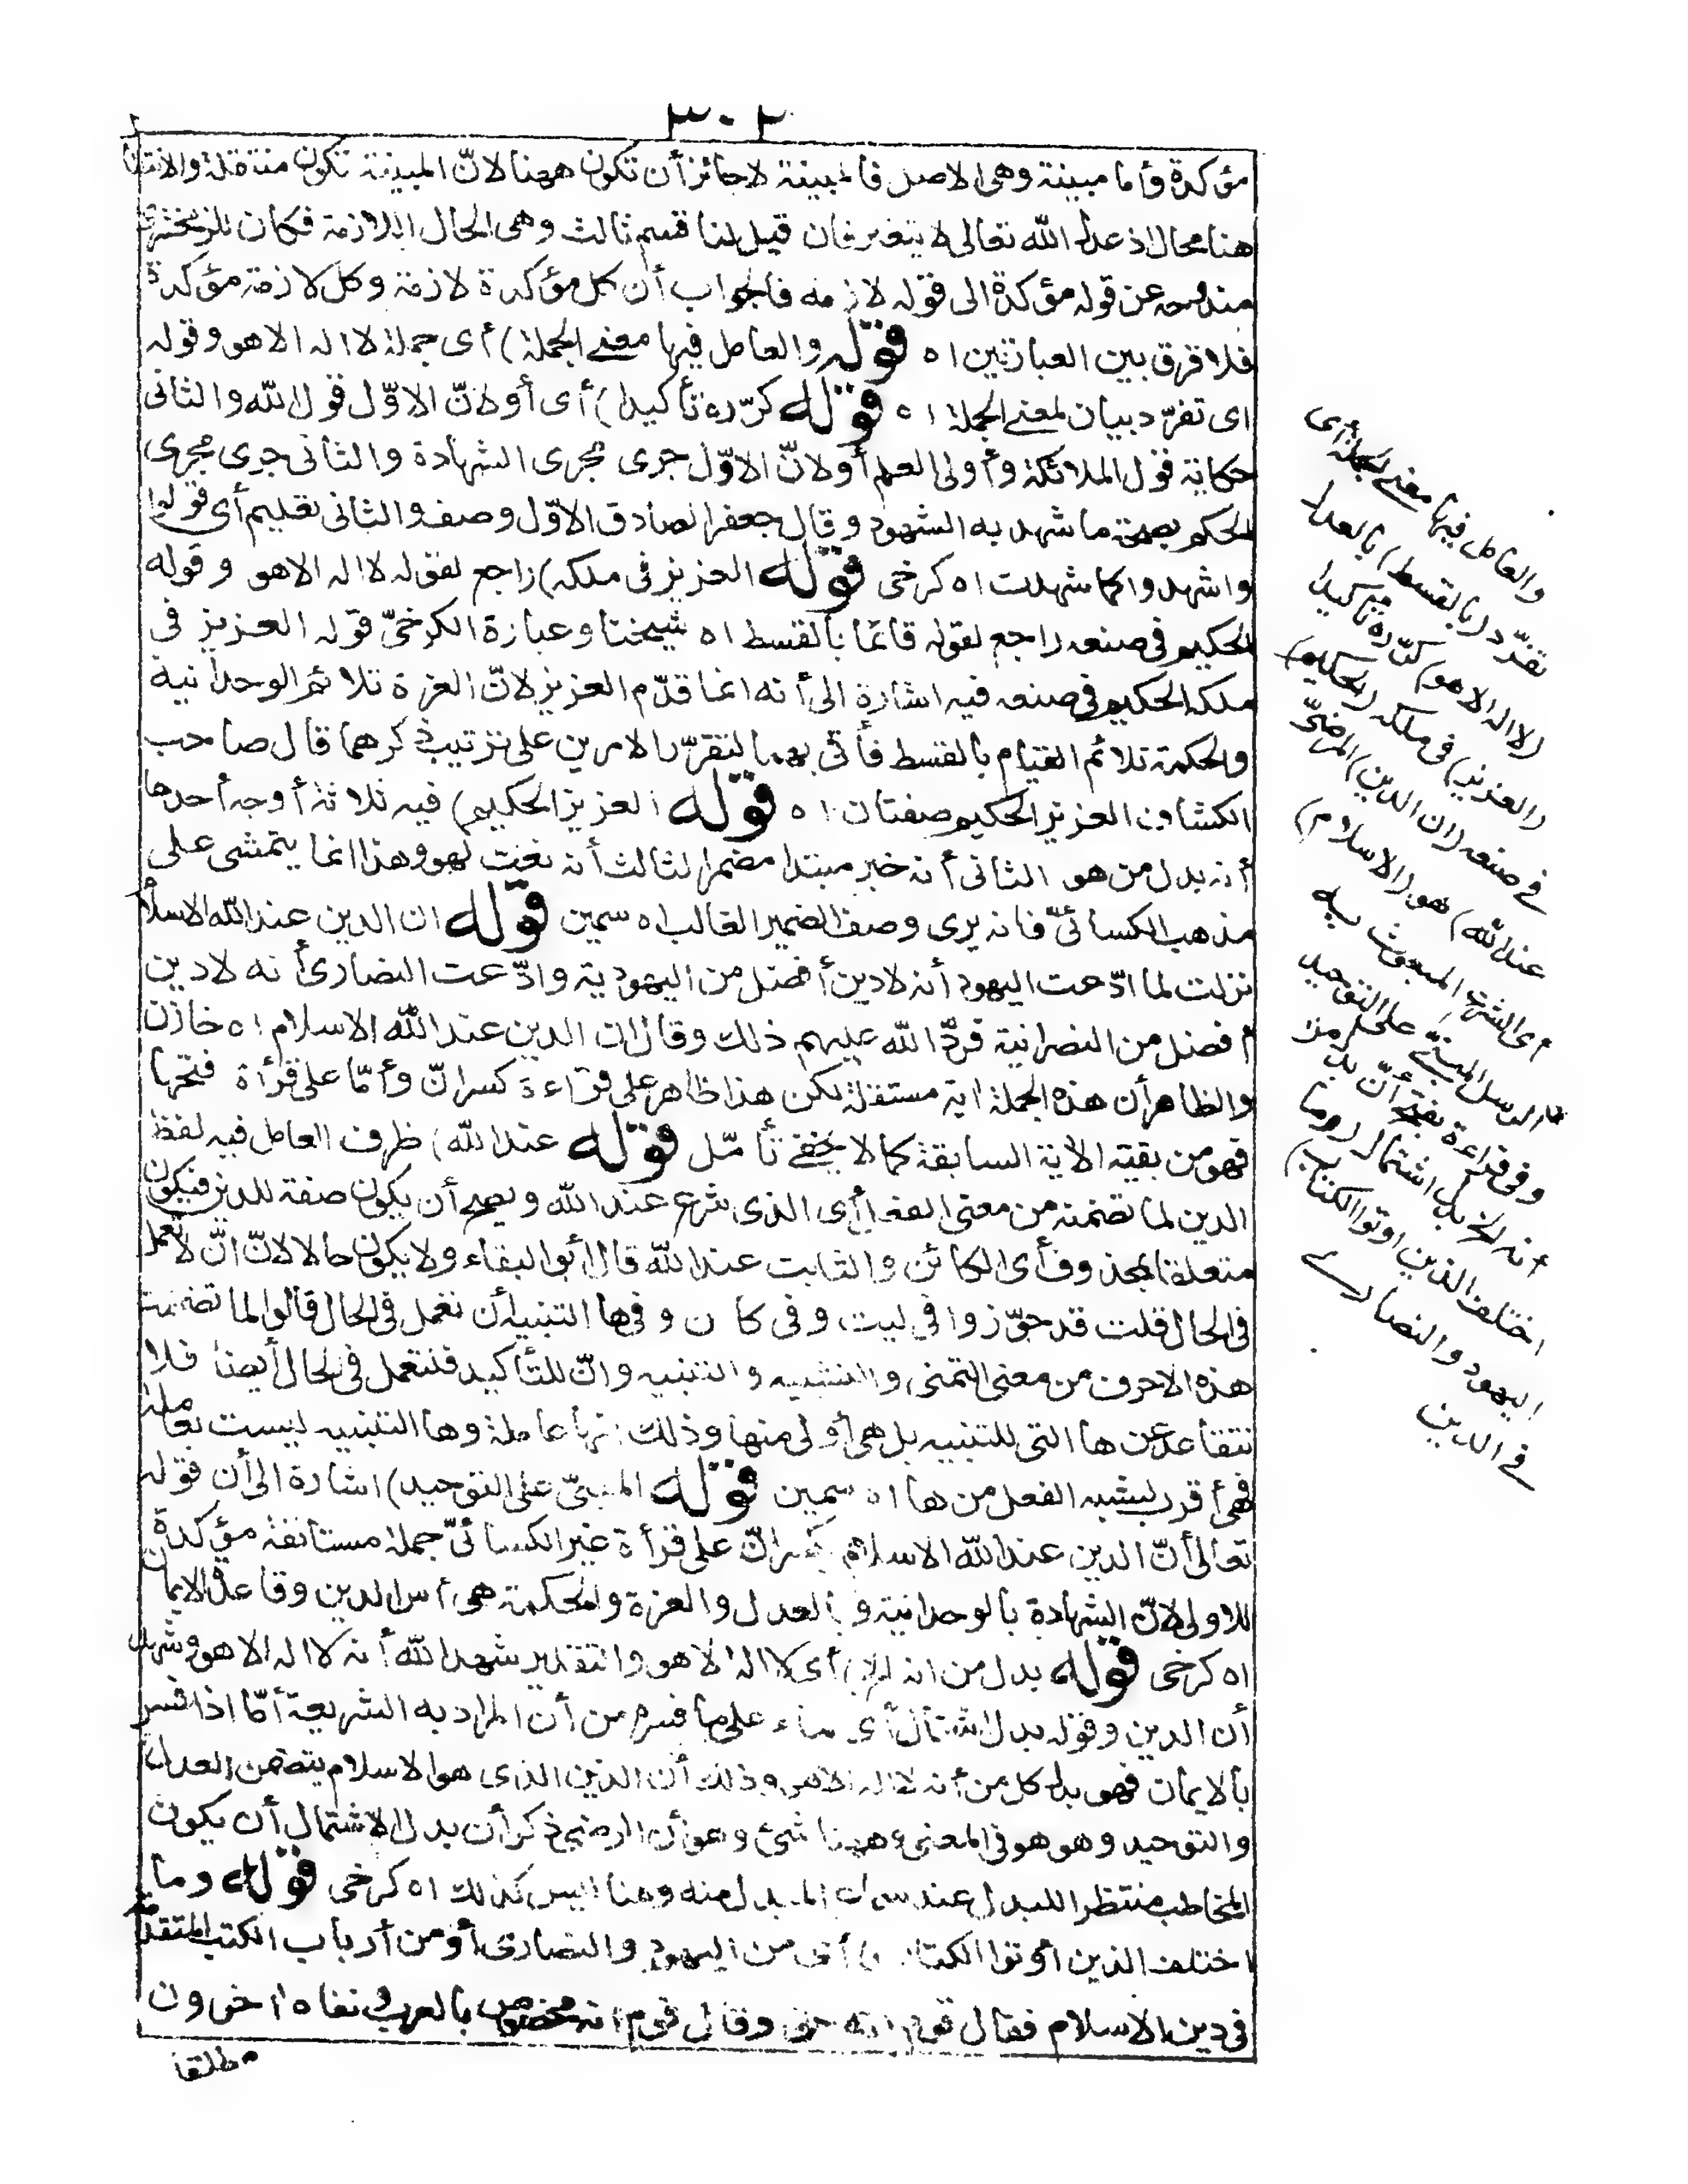 ٣٠٢
مؤكدة وأما مبينة وهى الاصل فالمبينة لاجائز أن تكون ههنا لانّ المبينة تكون منتقلة والانتقال
هنا محال اذ عدل الله تعالى لا يتغير فان قيل لنا قسم ثالث وهى الحال اللازمة فكان للزمخشرى
مندوحة عن قوله مؤكدة الى قوله لازمة فالجواب أن كل مؤكدة لازمة وكل لازمة مؤكدة
فلا فرق بين العبارتين اه قوله والعامل فيها معنى الجملة) أى جملة لا اله الا هو وقوله
اى تفرّد بيان لمعنى الجملة اه قوله كرّره تأكيدا) أى أو لانّ الاوّل قول الله والثانى
حكاية قول الملائكة وأولى العلم أو لانّ الاوّل جرى مجرى الشهادة والثانى جرى مجرى
الحكم بصحة ما شهد به الشهود وقال جعفر الصادق الاوّل وصف والثانى تعليم أى قولوا
واشهدوا كما شهدت اه كرخى قوله العزيز فى ملكه) راجع لقوله لا اله الا هو وقوله
الحكيم فى صنعه راجع لقوله قائما بالقسط اه شيخنا وعبارة الكرخىّ قوله العزيز فى
ملكه الحكيم فى صنعه فيه اشارة الى أنه انما قدّم العزيز لانّ العزة تلائم الوحدانية
والحكمة تلائم القيام بالقسط فأتى بهما لتقرّر الامرين على ترتيب ذكرهما قال صاحب
الكشاف العزيز الحكيم صفتان اه قوله العزيز الحكيم) فيه ثلاثة أوجه أحدها
أنه بدل من هو الثانى أنه خبر مبتدا مضمر الثالث أنه نعت لهو وهذا انما يتمشى على
مذهب الكسائىّ فانه يرى وصف الضمير الغائب اه سمين قوله ان الدين عند الله الاسلام
نزلت لما ادّعت اليهود أنه لا دين أفضل من اليهودية وادّعت النصارى أنه لا دين
أفضل من النصرانية فردّ الله عليهم ذلك وقال ان الدين عند الله الاسلام اه خازن
والظاهر أن هذه الجملة اية مستقلة لكن هذا ظاهر على قراءة كسر انّ وأمّا على قرأة فتحها
فهو من بقية الاية السابقة كما لا يخفى تأمّل قوله عند الله) ظرف العامل فيه لفظ
الدين لما تضمنه من معنى الفعل أى الذى شرع عند الله ويصح أن يكون صفة للدين فيكون
متعلقا بمحذوف أى الكائن والثابت عند الله قال أبو البقاء ولا يكون حالا لانّ انّ لا تعمل
فى الحال قلت قد جوّزوا فى ليت وفى كان وفى ها التنبيه أن تعمل فى الحال قالوا لما تضمنت
هذه الاحرف من معنى التمنى والتشبيه والتنبيه وانّ للتأكيد فلتعمل فى الحال أيضا فلا
تتقاعد عن ها التى للتنبيه بل هى أولى منها وذلك انها عاملة وها التنبيه ليست بعاملة
فهى أقرب لشبه الفعل من ها اه سمين قوله المبنىّ على التوحيد) اشارة الى أن قوله
تعالى أنّ الدين عند الله الاسلام بكسر انّ على قرأة غير الكسائىّ جملة مستانفة مؤكدة
للاولى لانّ الشهادة بالوحدانية وبالعدل والعزة والحكمة هى أس الدين وقاعدة الايمان
اه كرخى قوله بدل من انه الخ) أى لا اله الا هو والتقدير شهد الله أنه لا اله الا هو وشهد
أن الدين وقوله بدل اشتمال أى بناء على ما فسره من أن المراد به الشريعة أمّا اذا فسر
بالايمان فهو بدل كل من أنه لا اله الا هو وذلك أن الدين الذى هو الاسلام يتضمن العدل
والتوحيد وهو هو فى المعنى وههنا شئ وهو أن الرضى ذكر أن بدل الاشتمال أن يكون
المخاطب منتظرا للبدل عند سماع المبدل منه وهنا ليس كذلك اه كرخى قوله وما
اختلف الذين أوتوا الكتاب) أى من اليهود والنصارى أو من أرباب الكتب المتقدّمة
فى دين الاسلام فقال قوم انه حق وقال قوم انه مخصوص بالعرب ونفاه اخرون
مطلقا
والعامل فيها معنى الجملة أى
تفرّد (بالقسط) بالعدل
(لا اله الا هو) كرّره تأكيدا
(العزيز) فى ملكه (الحكيم)
فى صنعه (ان الدين) المرضىّ
عند الله) هو (الاسلام)
أى الشرع المبعوث به
الرسل المبنىّ على التوحيد
وفى قراءة بفتح أنّ بدل من
أنه الخ بدل اشتمال (وما
اختلف الذين اوتوا الكتاب)
اليهود والنصارى
فى الدين